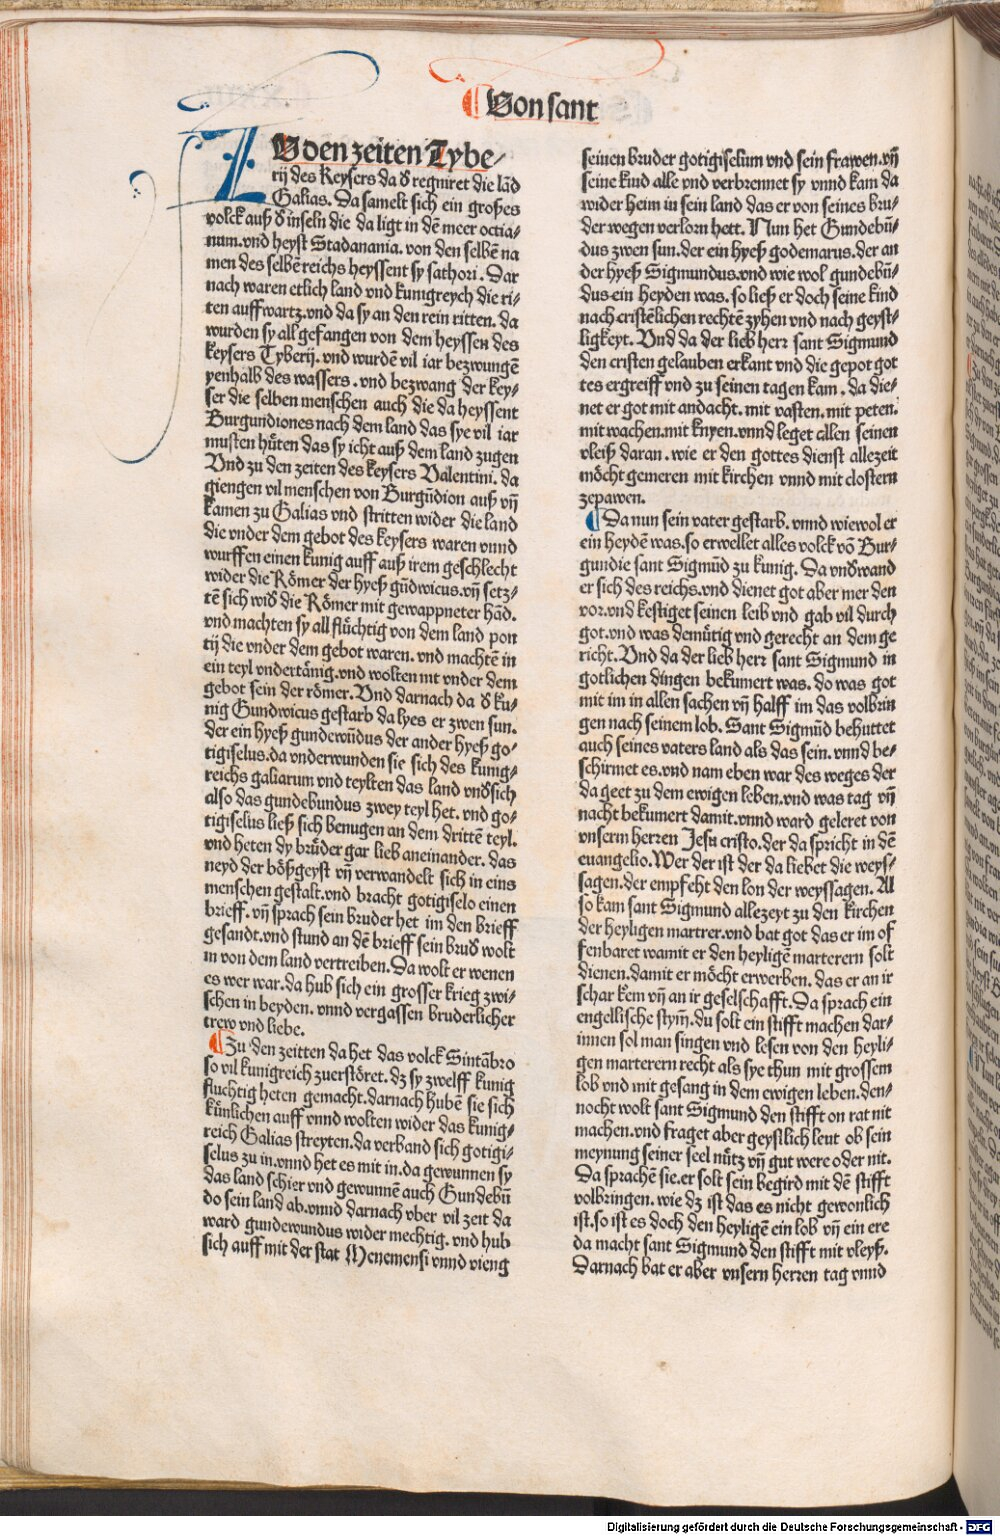 Von sant
ZV den zeiten Tybe⸗
rij des Keysers da d̕ regniret die lād
Galias. Da samelt sich ein großes
volck auß d̕ inseln die da ligt in dē meer octia⸗
num. vnd heyst Stadanania. von den selbē na
men des selbē reichs heyssent sy sathori. Dar
nach waren etlich land vnd kunigreych die ri⸗
ten auffwartz. vnd da sy an den rein ritten. da
wurden sy all gefangen von dem heyssen des
keysers Tyberij. vnd wurdē vil iar bezwungē
yenhalb des wassers. vnd bezwang der key⸗
ser die selben menschen auch die da heyssent
Burgundiones nach dem land das sye vil iar
musten hüten das sy icht auß dem land zugen
Vnd zu den zeiten des keysers Valentini. da
giengen vil menschen von Burgūdion auß vn̄
kamen zu Galias vnd stritten wider die land
die vnder dem gebot des keysers waren vnnd
wurffen einen kunig auff auß irem geschlecht
wider die Römer der hyeß gūdwicus. vn̄ setz⸗
tē sich wid̕ die Römer mit gewappneter hād.
vnd machten sy all flüchtig von dem land pon
tij die vnder dem gebot waren. vnd machtē in
ein teyl vndertänig. vnd wolten nit vnder dem
gebot sein der römer. Vnd darnach da d̕ ku⸗
nig Gundwicus gestarb da lyes er zwen sun.
der ein hyeß gundewūdus der ander hyeß go⸗
tigiselus. da vnderwunden sie sich des kunig⸗
reichs galiarum vnd teylten das land vnd̕ sich
also das gundebundus zwey teyl het. vnd go⸗
tigiselus ließ sich benugen an dem drittē teyl.
vnd heten dy brüder gar lieb aneinander. das
neyd der bößgeyst vn̄ verwandelt sich in eins
menschen gestalt. vnd bracht gotigiselo einen
brieff. vn̄ sprach sein bruder het im den brieff
gesandt. vnd stund an dē brieff sein brud̕ wolt
in von dem land vertreiben. Da wolt er wenen
es wer war. da hub sich ein grosser krieg zwi⸗
schen in beyden. vnnd vergassen bruderlicher
trew vnd liebe.
Zu den zeitten da het das volck Sintābro
so vil kunigreich zuerstöret. dz sy zwelff kunig
fluchtig heten gemacht. darnach hubē sie sich
künlichen auff vnnd wolten wider das kunig⸗
reich Galias streyten. da verband sich gotigi⸗
selus zu in. vnnd het es mit in. da gewunnen sy
das land schier vnd gewunnē auch Gundebū
do sein land ab. vnnd darnach vber vil zeit da
ward gundewundus wider mechtig. vnd hub
sich auff mit der stat Menemensi vnnd vieng
seinen bruder gotigiselum vnd sein frawen. vn̄
seine kind alle vnd verbrennet sy vnnd kam da
wider heim in sein land das er von seines bru⸗
der wegen verlorn hett. Nun het Gundebū⸗
dus zwen sun. der ein hyeß godemarus. der an
der hyeß Sigmundus. vnd wie wol gundebū⸗
dus ein heyden was. so ließ er doch seine kind
nach cristēlichen rechtē zyhen vnd nach geyst⸗
ligkeyt. Vnd da der lieb herr sant Sigmund
den cristen gelauben erkant vnd die gepot got
tes ergreiff vnd zu seinen tagen kam. da die⸗
net er got mit andacht. mit vasten. mit peten.
mit wachen. mit knyen. vnnd leget allen seinen
vleiß daran. wie er den gottes dienst allezeit
möcht gemeren mit kirchen vnnd mit clostern
zepawen.
Da nun sein vater gestarb. vnnd wiewol er
ein heydē was. so erwellet alles volck vō Bur⸗
gundie sant Sigmūd zu kunig. Da vnd̕wand
er sich des reichs. vnd dienet got aber mer den
vor. vnd kestiget seinen leib vnd gab vil durch
got. vnd was demütig vnd gerecht an dem ge
richt. Vnd da der lieb herr sant Sigmund in
gotlichen dingen bekumert was. do was got
mit im in allen sachen vn̄ halff im das volbrin
gen nach seinem lob. Sant Sigmūd behuttet
auch seines vaters land als das sein. vnnd be⸗
schirmet es. vnd nam eben war des weges der
da geet zu dem ewigen leben. vnd was tag vn̄
nacht bekumert damit. vnnd ward geleret von
vnserm herren Jesu cristo. der da spricht in dē
euangelio. Wer der ist der da liebet die weys⸗
sagen. der empfeht den lon der weyssagen. Al
so kam sant Sigmund allezeyt zu den kirchen
der heyligen martrer. vnd bat got das er im of
fenbaret wamit er den heyligē marterern solt
dienen. damit er möcht erwerben. das er an ir
schar kem vn̄ an ir geselschafft. Da sprach ein
engellische stym̄. du solt ein stifft machen dar⸗
innen sol man singen vnd lesen von den heyli⸗
gen marterern recht als sye thun mit grossem
lob vnd mit gesang in dem ewigen leben. den⸗
nocht wolt sant Sigmund den stifft on rat nit
machen. vnd fraget aber geystlich leut ob sein
meynung seiner seel nütz vn̄ gut were oder nit.
Da sprachē sie. er solt sein begird mit dē stifft
volbringen. wie dz ist das es nicht gewonlich
ist. so ist es doch den heyligē ein lob vn̄ ein ere
da macht sant Sigmund den stifft mit vleyß.
Darnach bat er aber vnsern herren tag vnnd
Digitalisierung gefördert durch die Deutsche Forschungsgemeinschaft - DFG